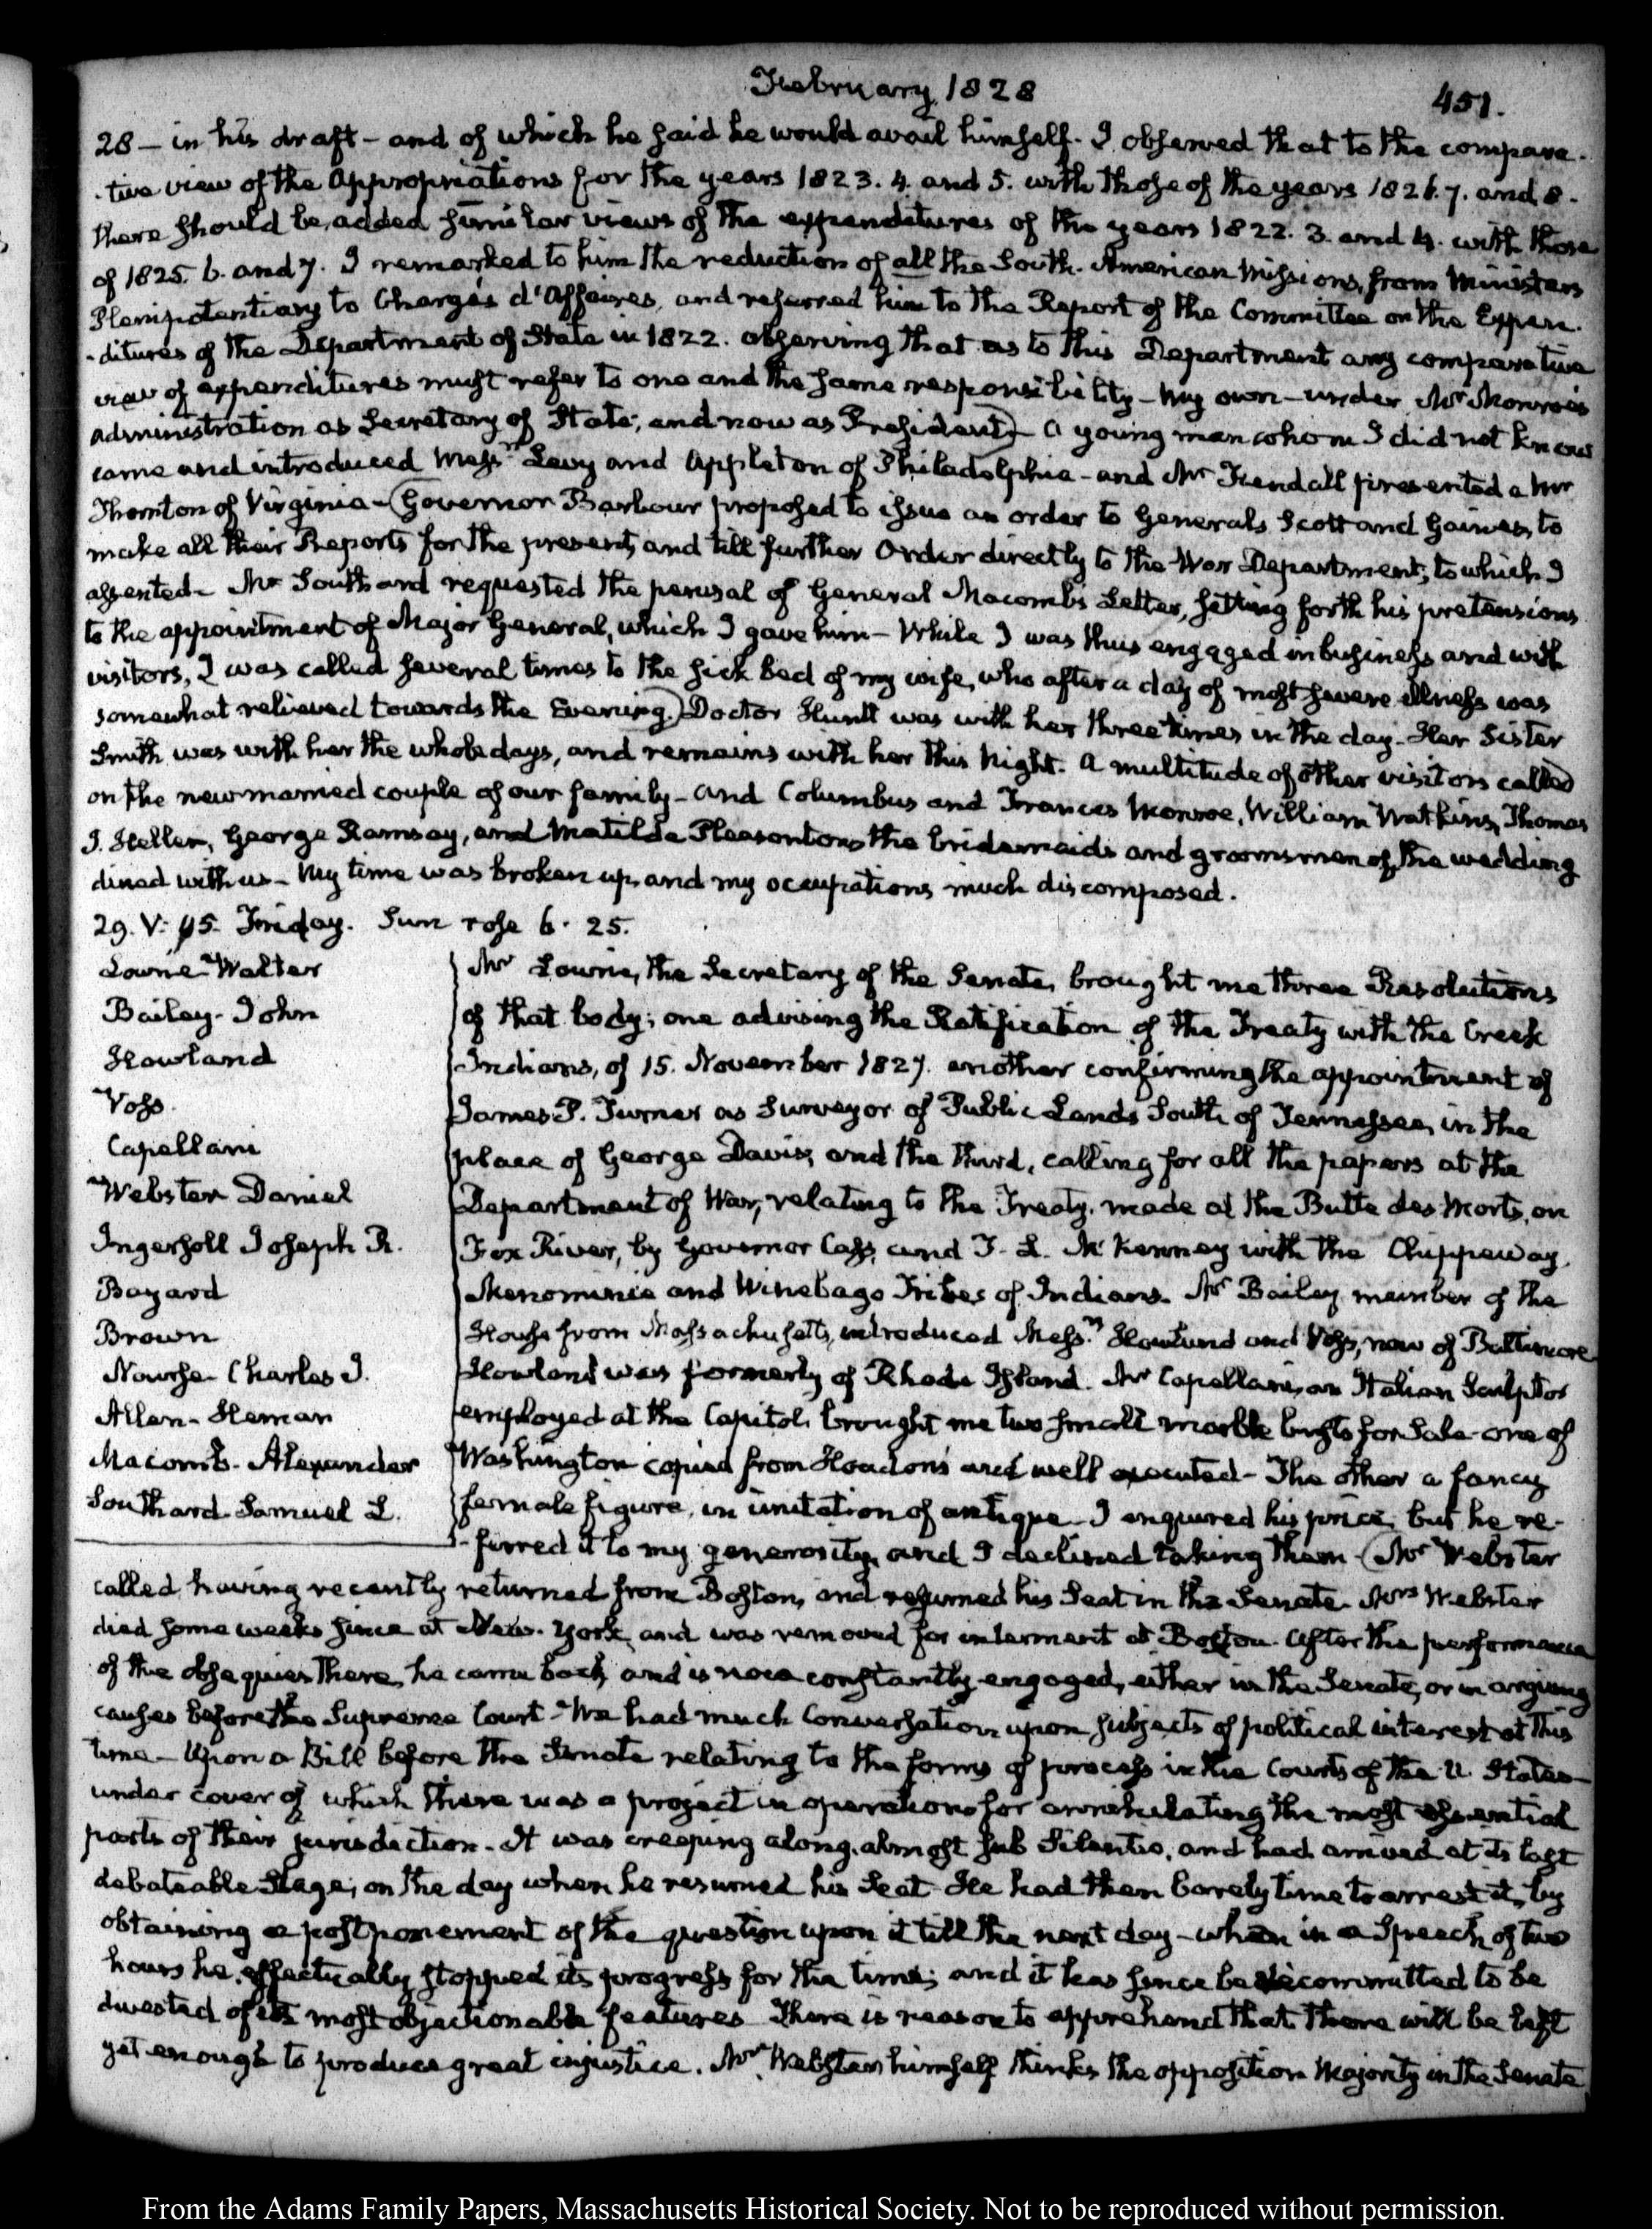 February 1828
451.
28 — in his draft — and of which he said he would avail himself. I observed that to the compara-
-tive view of the Appropriations for the years 1823. 4. and 5. with those of the years 1826. 7. and 8.
there should be added similar views of the expenditures of the years 1822. 3. and 4. with those
of 1825. 6. and 7. I remarked to him the reduction of all the South-American Missions, from Ministers
Plenipotentiary to Chargés d'Affaires, and referred him to the Report of the Committee on the Expen-
-ditures of the Department of State in 1822. observing that as to this Department any comparative
view of expenditures must refer to one and the same responsibility — my own — under Mr Monroe's
administration as Secretary of State; and now as President) — A young man whom I did not know
came and introduced Messrs Levy and Appleton of Philadelphia — and Mr Kendall presented a Mr
Thornton of Virginia — (Governor Barbour proposed to issue an order to Generals Scott and Gaines, to
make all their Reports for the present, and till further Order directly to the War Department; to which I
assented — Mr Southard requested the perusal of General Macomb's Letter, setting forth his pretensions
to the appointment of Major General, which I gave him — While I was thus engaged in business and with
visitors, I was called several times to the sick bed of my wife, who after a day of most severe illness was
somewhat relieved towards the Evening.) Doctor Huntt was with her three times in the day. Her Sister
Smith was with her the whole days, and remains with her this Night. A multitude of other visitors called
on the new married couple of our family — and Columbus and Frances Monroe, William Watkins, Thomas
J. Hellen, George Ramsay, and Matilda Pleasonton, the bridesmaids and groomsmen of the wedding
dined with us — My time was broken up, and my occupations much discomposed.
29. V: 45. Friday. Sun rose 6. 25.
Lowrie Walter
Bailey - John
Howland
Voss.
Capellani
Webster Daniel
Ingersoll Joseph R.
Bayard
Brown
Nourse - Charles J.
Allen - Heman
Macomb - Alexander
Southard - Samuel L.
Mr Lowrie, the Secretary of the Senate, brought me three Resolutions
of that body; one advising the Ratification of the Treaty with the Creek
Indians, of 15. November 1827. another confirming the appointment of
James P. Turner as Surveyor of Public Lands South of Tennessee, in the
place of George Davis; and the third, calling for all the papers at the
Department of War, relating to the Treaty, made at the Butte des Morts, on
Fox River, by Governor Cass, and T. L. McKenney with the Chippeway,
Menominie and Winebago Tribes of Indians. Mr Bailey member of the
House from Massachusetts, introduced Messrs Howland and Voss, now of Baltimore
Howland was formerly of Rhode Island. Mr Capellani, an Italian Sculptor
employed at the Capitol, brought me two small marble busts for Sale — one of
Washington copied from Houdon's and well executed — The other a fancy
female figure, in imitation of antique. I enquired his price, but he re-
-ferred it to my generosity, and I declined taking them — (Mr Webster
called, having recently returned from Boston, and resumed his Seat in the Senate. Mrs Webster
died some weeks since at New-York, and was removed for interment at Boston. After the performance
of the obsequies there, he came back, and is now constantly engaged, either in the Senate, or in arguing
causes before the Supreme Court — We had much Conversation upon subjects of political interest at this
time — Upon a Bill before the Senate relating to the forms of process in the Courts of the U. States —
under cover of which there was a project in operation for annihilating the most essential
parts of their jurisdiction. It was creeping along, almost sub Silentio, and had arrived at its last
debateable Stage, on the day when he resumed his Seat. He had then barely time to arrest it, by
obtaining a postponement of the question upon it till the next day — when in a Speech of two
hours he effectually stopped its progress for the time; and it has since been recommitted to be
divested of its most objectionable features. There is reason to apprehend that there will be left
yet enough to produce great injustice. Mr Webster himself thinks the opposition Majority in the Senate
From the Adams Family Papers, Massachusetts Historical Society. Not to be reproduced without permission.